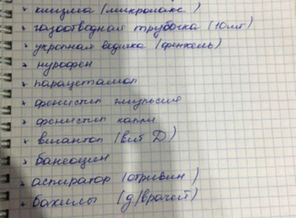 • клизма (микролакс)
• газоотводная трубочка (10шт)
• укропная водичка (фенхель)
• нурофен
• парацетамол
• фенистил эмульсия
• фенистил капли
• вигантол (вит Д)
• банеоцин
• аспиратор (отривин)
• бахилы (д/врачей)